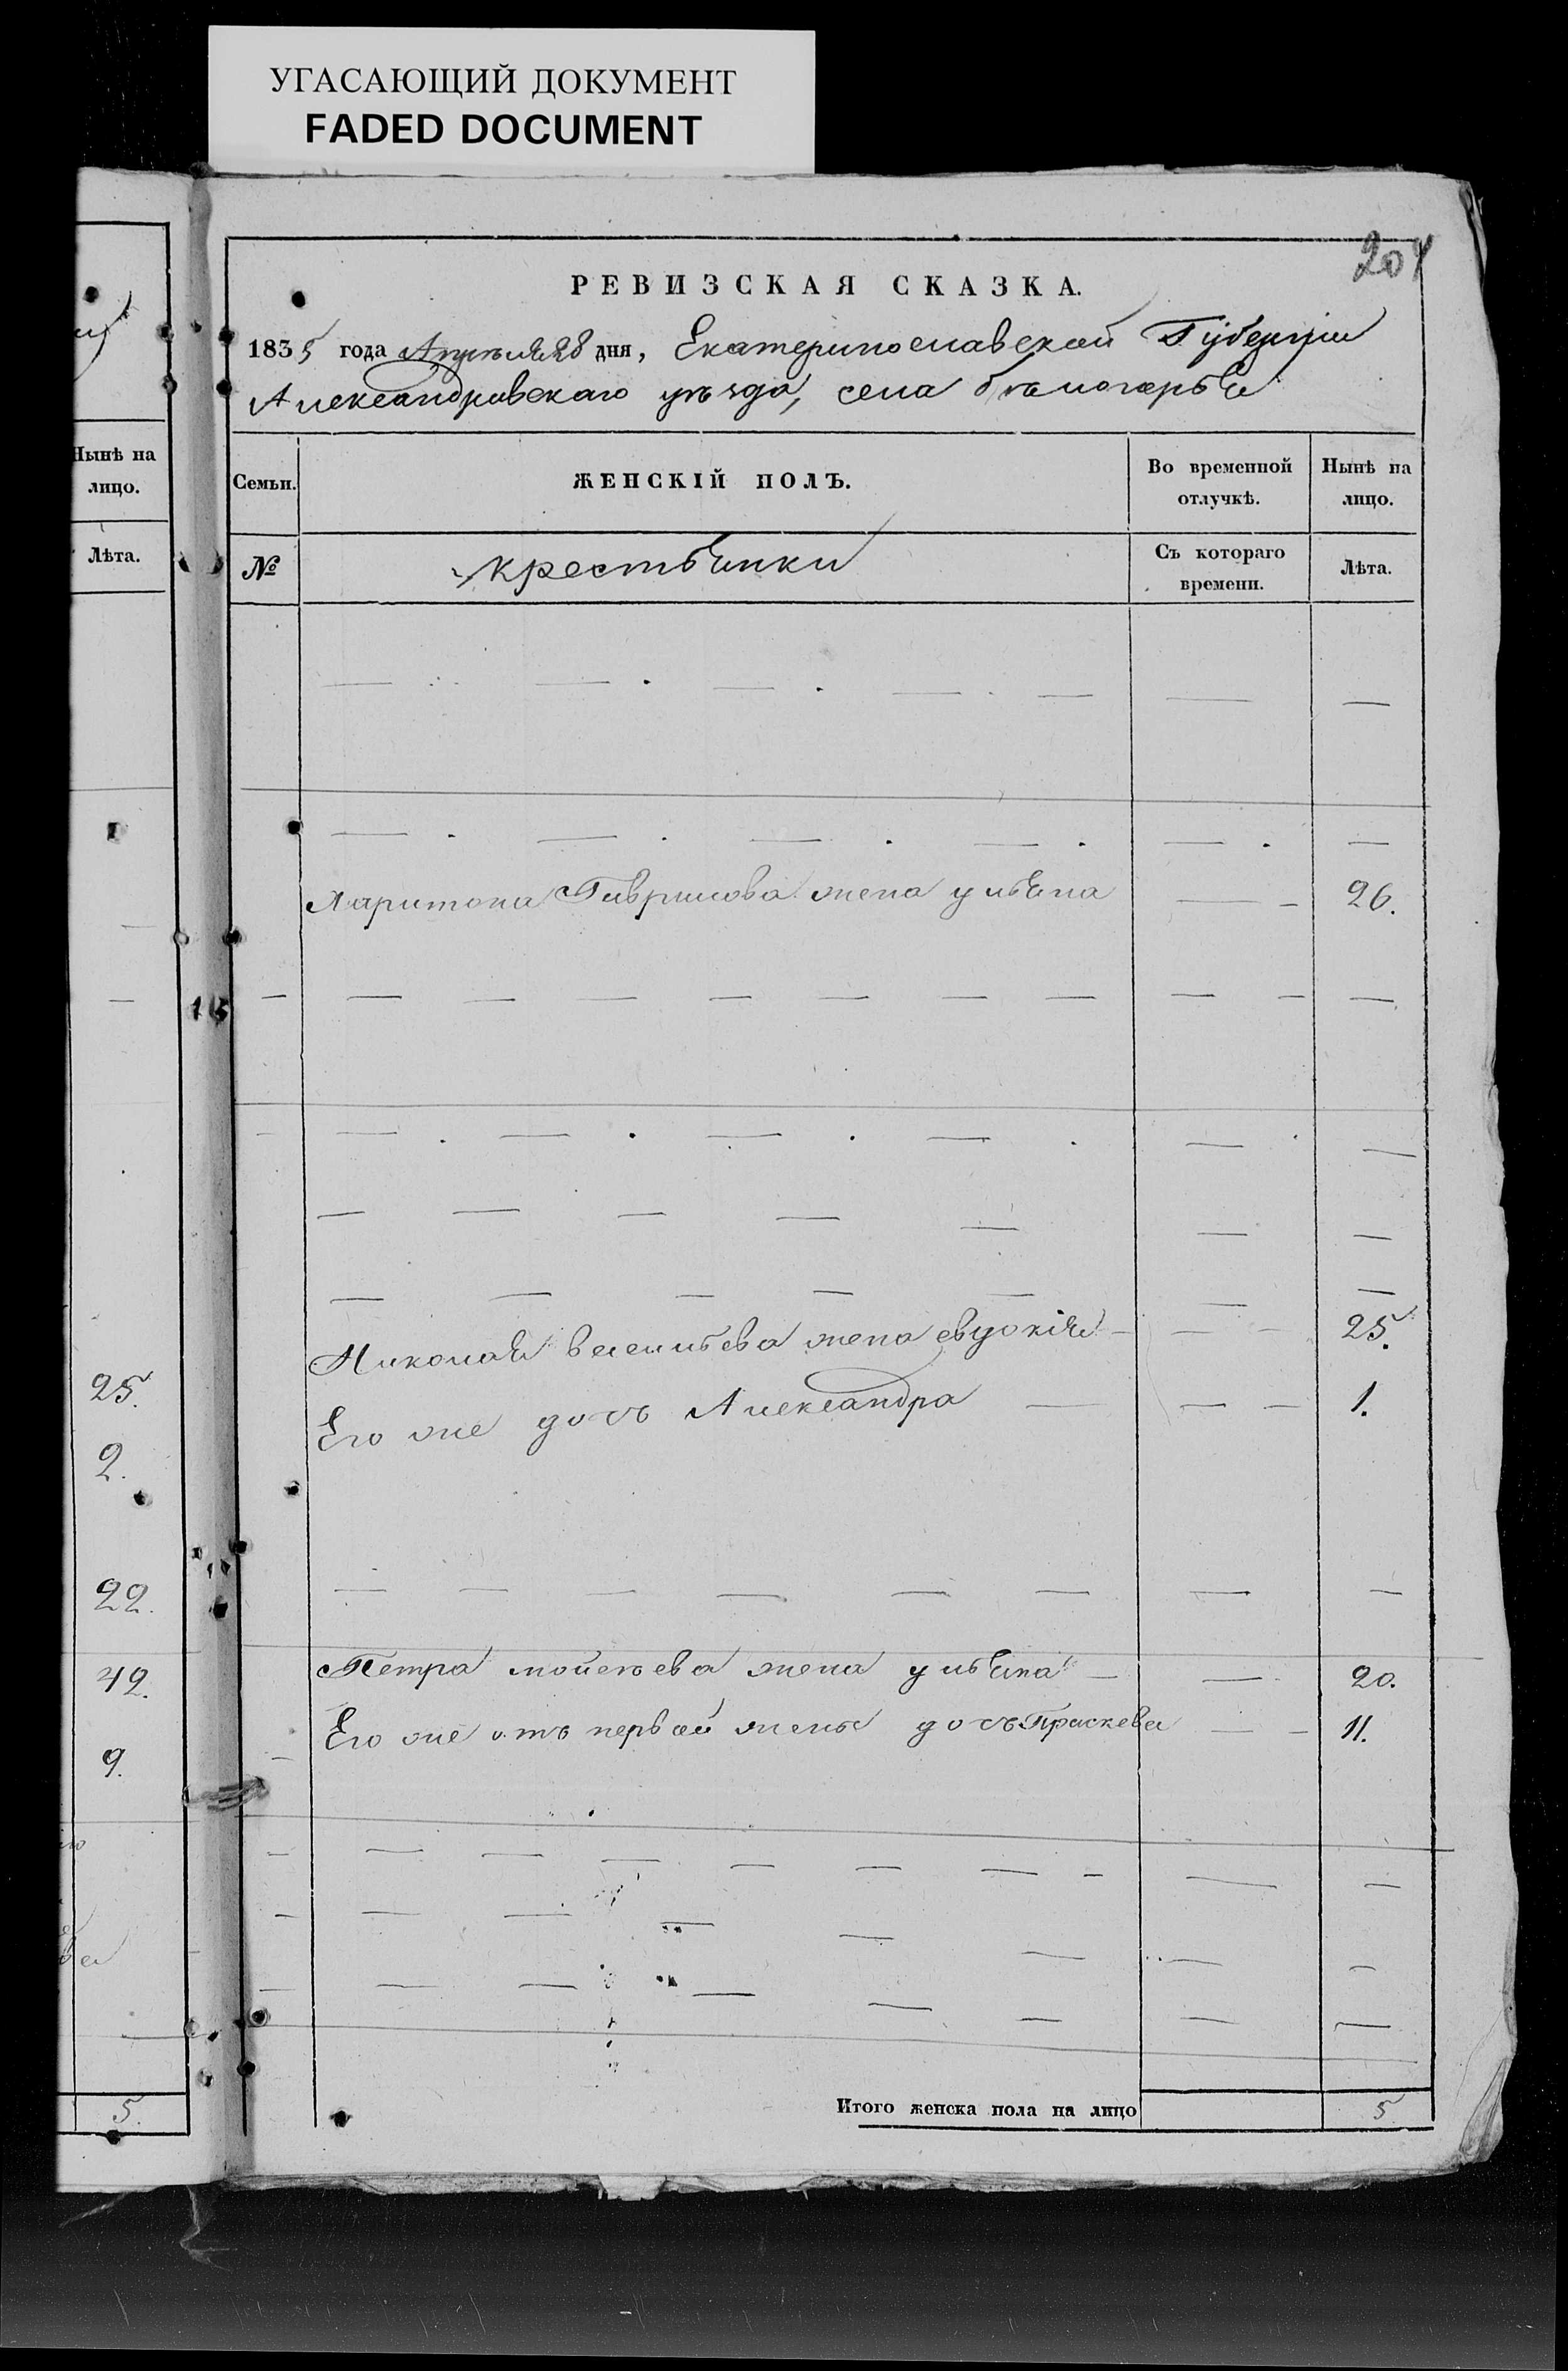 УГАСАЮЩИЙ ДОКУМЕНТ
FADED DOCUMENT
204
РЕВИЗСКАЯ СКАЗКА.
1835 года Апреля 28 дня, Екатеринославской Губерніи
Александровскаго уѣзда, села бѣлогорья
Семьи.
ЖЕНСКІЙ ПОЛЪ.
Во временной отлучкѣ.
Нынѣ на лицо.
№
крестьянки
Съ котораго времени.
Лѣта.
Харитона Гаврилова жена ульяна 26.
Николая васильева жена евдокія 25.
Его же дочь Александра 1.
Петра мойсеева жена ульяна 20.
Его же отъ первой жены дочь Праскева 11.
Итого женска пола на лицо 5
Нынѣ на
лицо.
Лѣта.
25.
2.
22.
42.
9.
5.